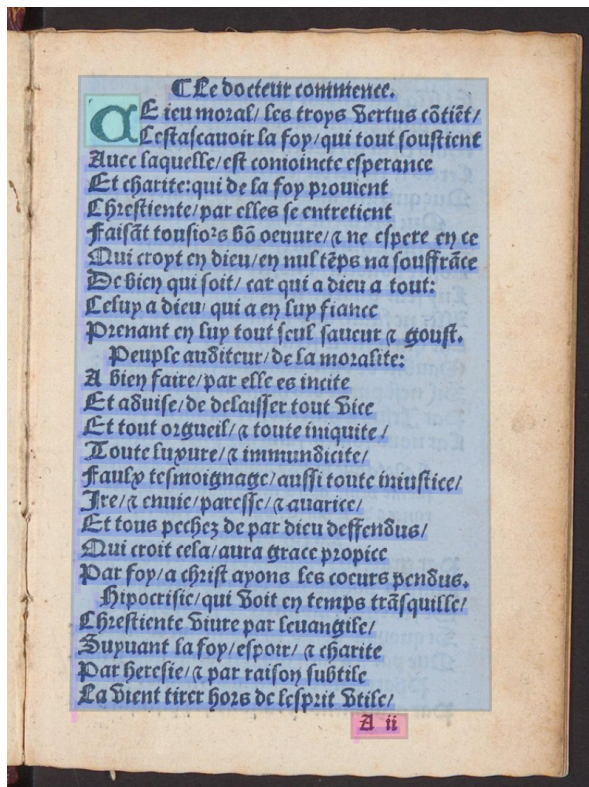 ⁋Le docteur commence.
CE ieu moral/ les troys vertus cõtiẽt/
Cestascauoir la foy/qui tout soustient
Auec laquelle/est conioincte esperance
Et charite:qui de la foy prouient
Chrestiente/par elles se entretient
Faisãt tousiors bõ oeuure/⁊ ne espere en ce
Qui croyt en dieu/en nul tẽps na souffrãce
De bien qui soit/ car qui a dieu a tout:
Celuy a dieu/ qui a en luy fiance
Prenant en luy tout seul saueur ⁊ goust.
Peuple auditeur/de la moralite:
A bien faire/par elle es incite
Et aduise/de delaisser tout vice
Et tout orgueil/⁊ toute iniquite/
Toute luxure/⁊ immundicite/
Faulx tesmoignage/aussi toute iniustice/
Ire/⁊ enuie/paresse/⁊ auarice/
Et tous pechez de par dieu deffendus/
Qui croit cela/aura grace propice
Par foy/a christ ayons les coeurs pendus.
Hipocrisie/qui voit en temps trãsquille/
Chrestiente viure par leuangile/
Suyuant la foy/espoir/ ⁊ charite
Par heresie/⁊ par raison subtile
La vient tirer hors de lesprit vtile/
A ii